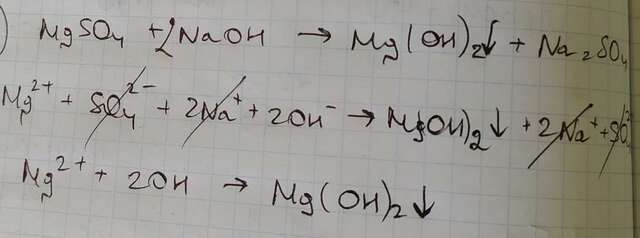 ) MgSO₄ + 2NaOH → Mg(OH)₂↓ + Na₂SO₄
Mg²⁺ + SO₄²⁻ + 2Na⁺ + 2OH⁻ → Mg(OH)₂↓ + 2Na⁺ + SO₄²⁻
Mg²⁺ + 2OH → Mg(OH)₂↓